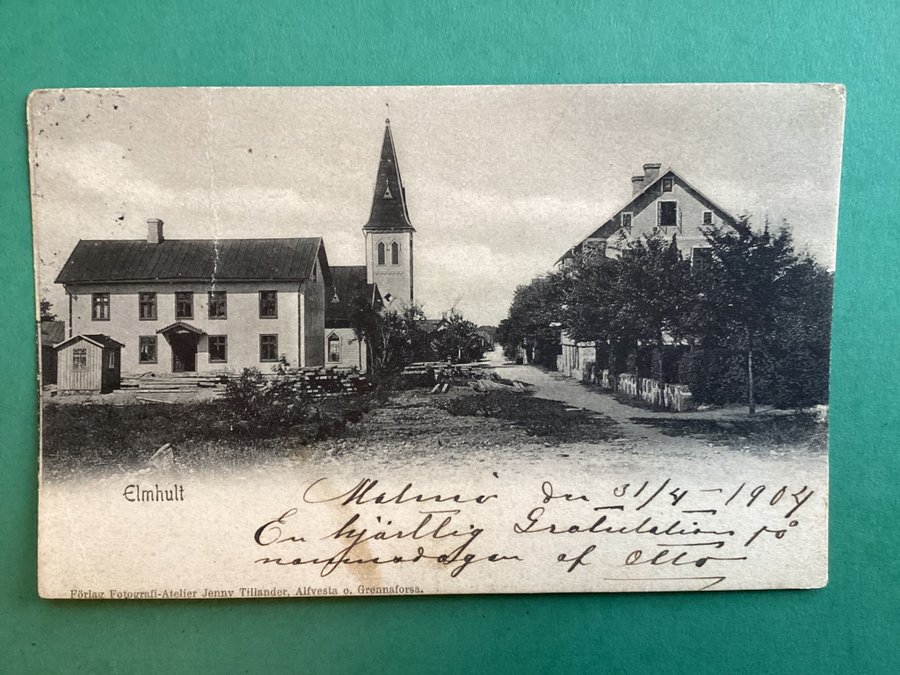 Elmhult
Malmö den 31/4-1904
En hjärtlig Gratulation på
namnsdagen af Otto
Förlag Fotografi-Atelier Jenny Tillander, Alfvesta o. Grennaforsa.